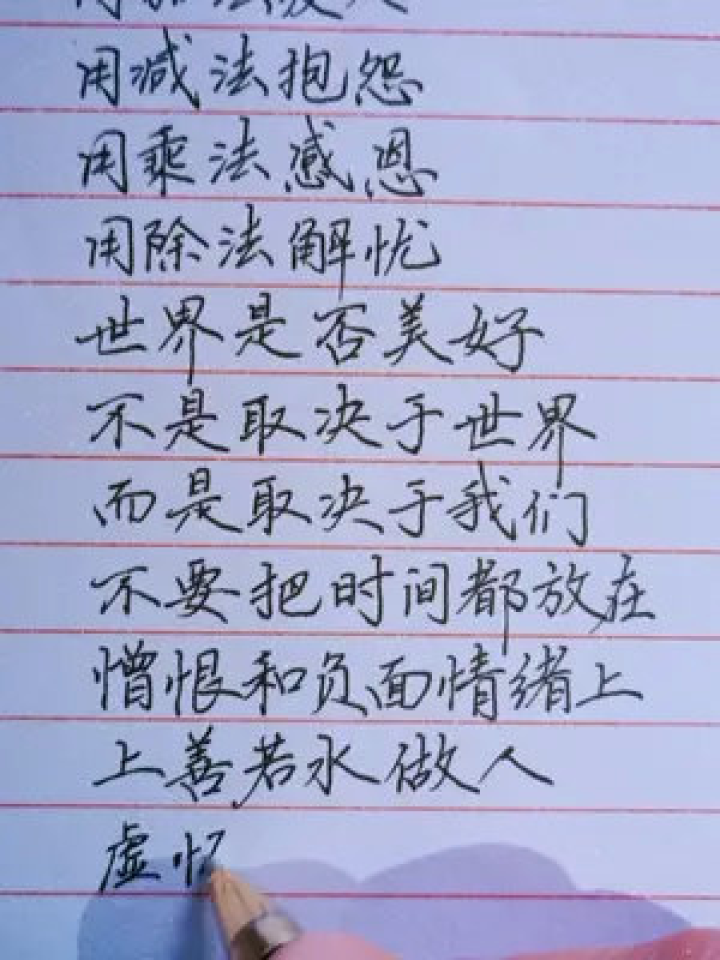 用减法抱怨
用乘法感恩
用除法解忧
世界是否美好
不是取决于世界
而是取决于我们
不要把时间都放在
憎恨和负面情绪上
上善若水做人
虚怀